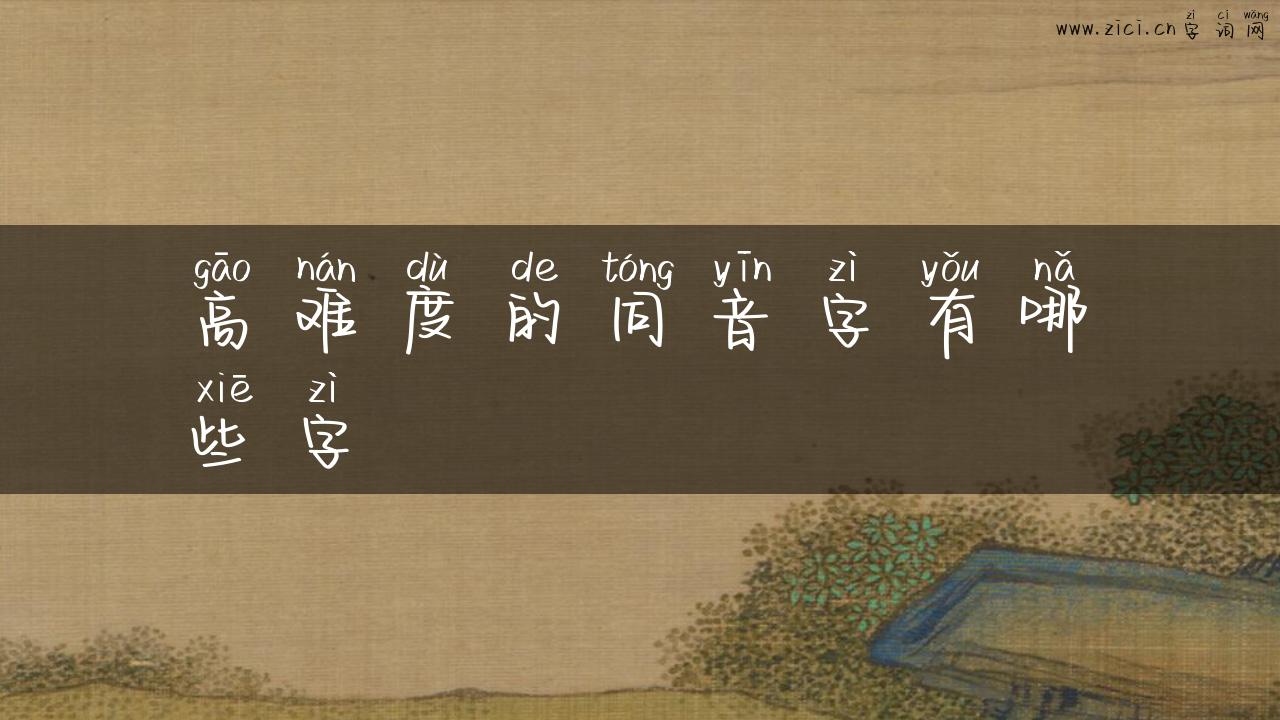 zì cí wǎng
www.zici.cn 字 词 网
gāo nán dù de tóng yīn zì yǒu nǎ
高 难 度 的 同 音 字 有 哪
xiē zì
些 字